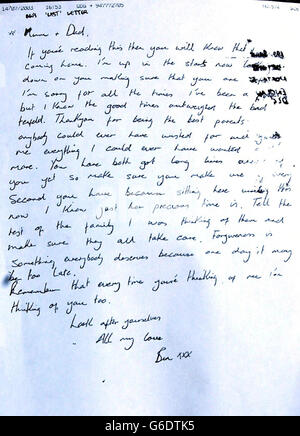 14/07/2003 16:53
BEN 'LAST' LETTER
"Mum & Dad,
If you're reading this then you will know that
coming home. I'm up in the stars now
down on you making sure that you are
I'm sorry for all the times I've been a
but I know the good times outweighed the bad
tenfold. Thankyou for being the best parents
anybody could ever have wished for and
me everything I could ever have wanted
more. You have both got long lives
you yet so make sure you make use every
Second you have because sitting here writing this
now I know just how precious time is. Tell the
rest of the family I was thinking of them and
make sure they all take care. Forgiveness is
something everybody deserves because one day it may
be too late.
Remember that every time you're thinking of me I'm
thinking of you too.
Look after yourselves
All my love
Ben xxx
alamy
G6DTK5